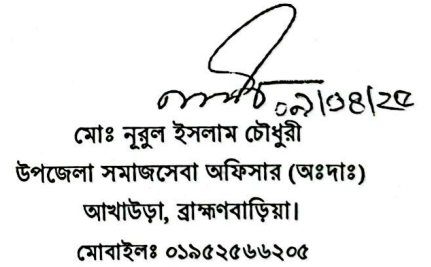 ০৯/০৪/২৫
মোঃ নূরুল ইসলাম চৌধুরী
উপজেলা সমাজসেবা অফিসার (অঃদাঃ)
আখাউড়া, ব্রাহ্মণবাড়িয়া।
মোবাইলঃ ০১৯৫২৫৬৬২০৫